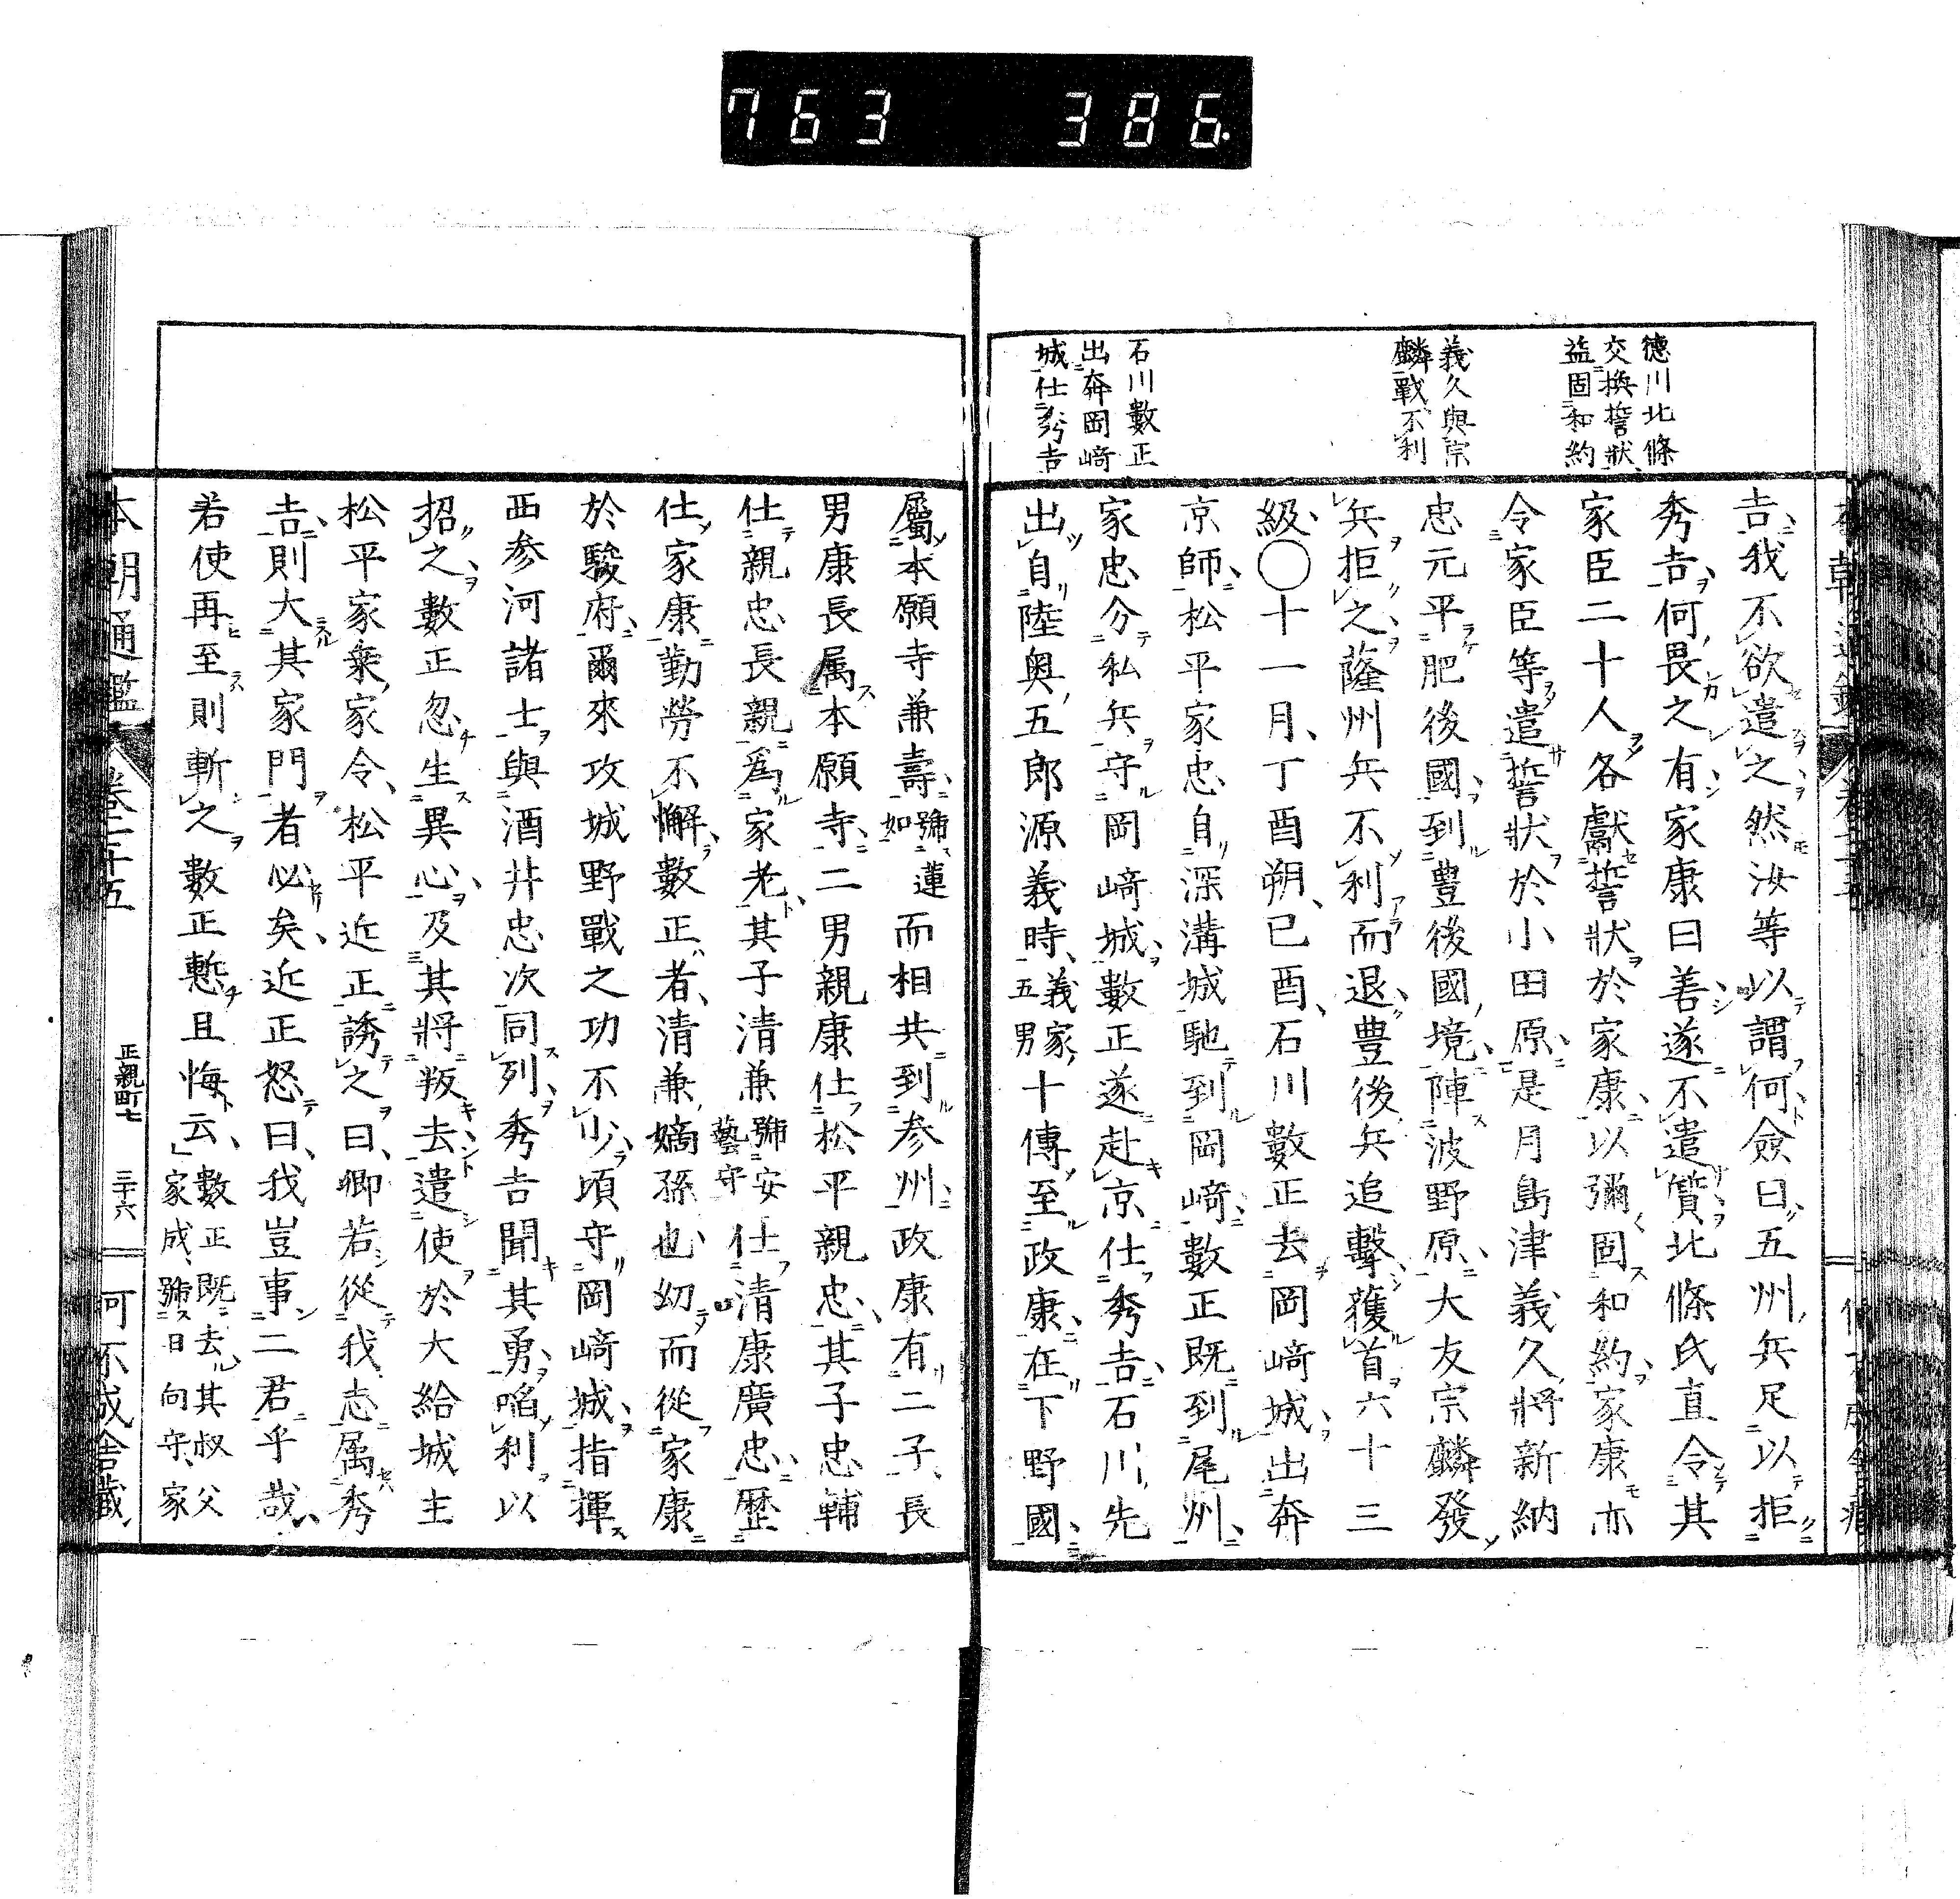 763 386.
德川北條
交換誓狀
益固和約
義久與宗
麟戰不利
石川數正
出奔岡﨑
城仕秀吉
吉我不欲遣之然汝等以謂何僉曰五州兵足以拒
秀吉何畏之有家康曰善遂不遣質北條氏直令其
家臣二十人各獻誓狀於家康以彌固和約家康亦
令家臣等遣誓狀於小田原是月島津義久將新納
忠元平肥後國到豊後國境陣波野原大友宗麟發
兵拒之薩州兵不利而退豊後兵追擊獲首六十三
級○十一月丁酉朔己酉石川數正去岡﨑城出奔
京師松平家忠自深溝城馳到岡﨑數正既到尾州
家忠分私兵守岡﨑城數正遂赴京仕秀吉石川先
出自陸奥五郎源義時義家五男十傳至政康在下野國
屬本願寺兼壽號蓮如而相共到参州政康有二子長
男康長属本願寺二男親康仕松平親忠其子忠輔
仕親忠長親爲家老其子清兼號安藝守仕清康廣忠歷
仕家康勤勞不懈數正者清兼嫡孫也幼而從家康
於駿府爾來攻城野戰之功不少頃守岡﨑城指揮
西参河諸士與酒井忠次同列秀吉聞其勇啗利以
招之數正忽生異心及其將叛去遣使於大給城主
松平家乘家令松平近正誘之曰卿若從我志属秀
吉則大其家門者必矣近正怒曰我豈事二君乎哉
若使再至則斬之數正慙且悔云數正既去其叔父家成號日向守家
本朝通鑑 卷二十五 正親町七 三十六 可不成舍藏